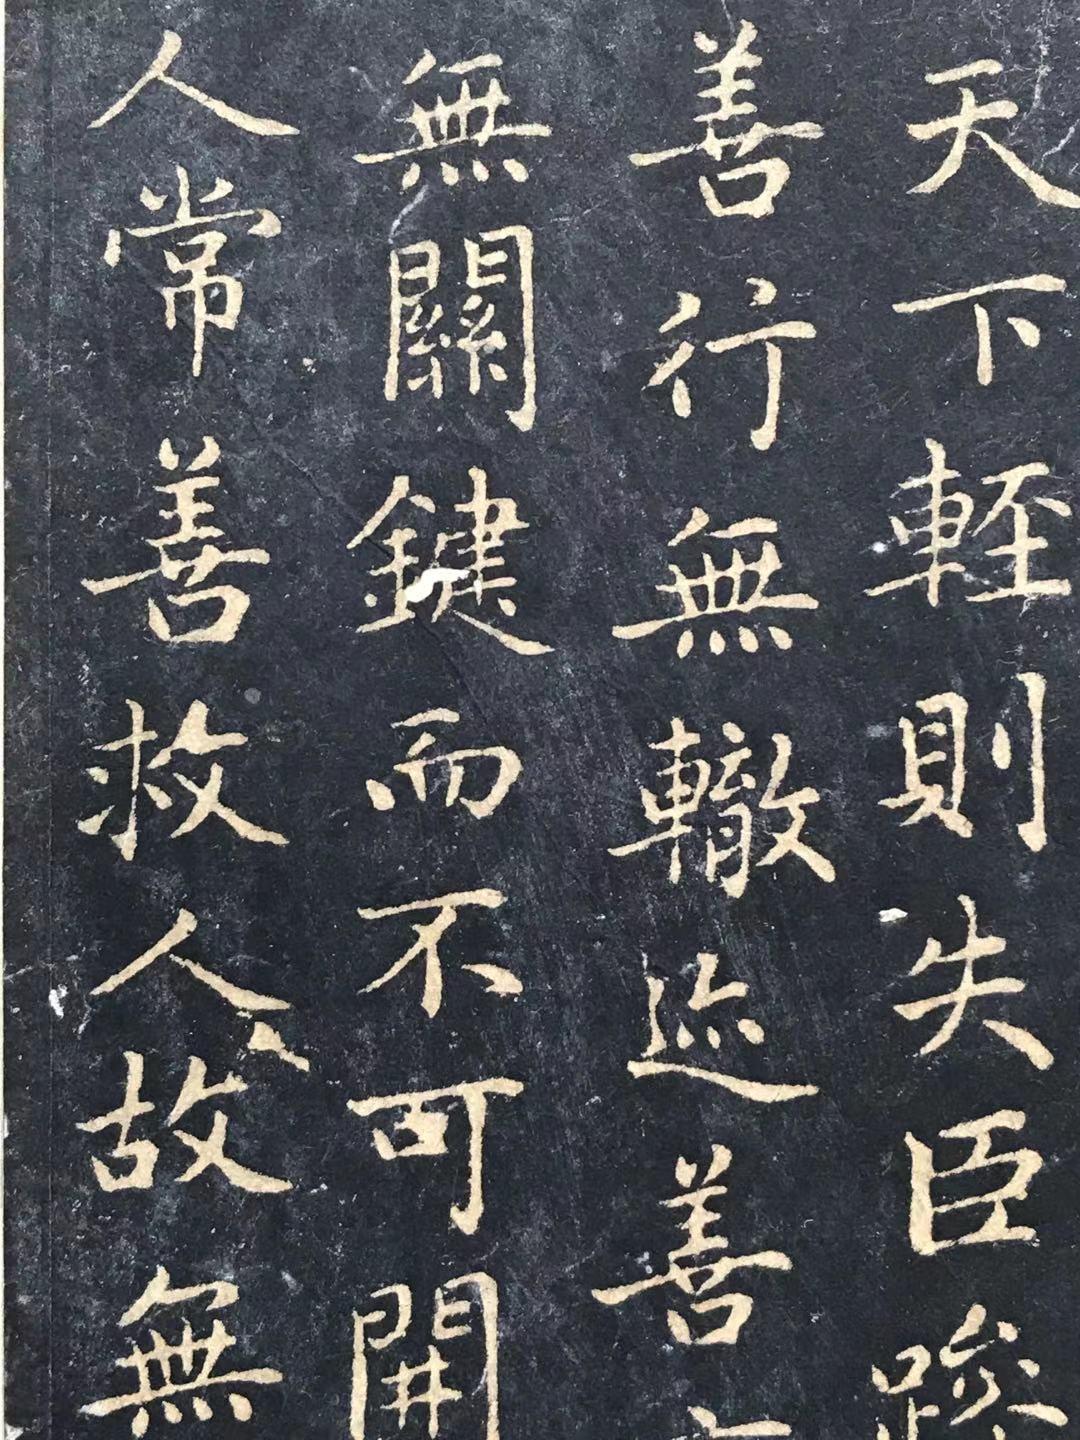 天下輕則失臣躁
善行無轍迹善言
無關鍵而不可開
人常善救人故無